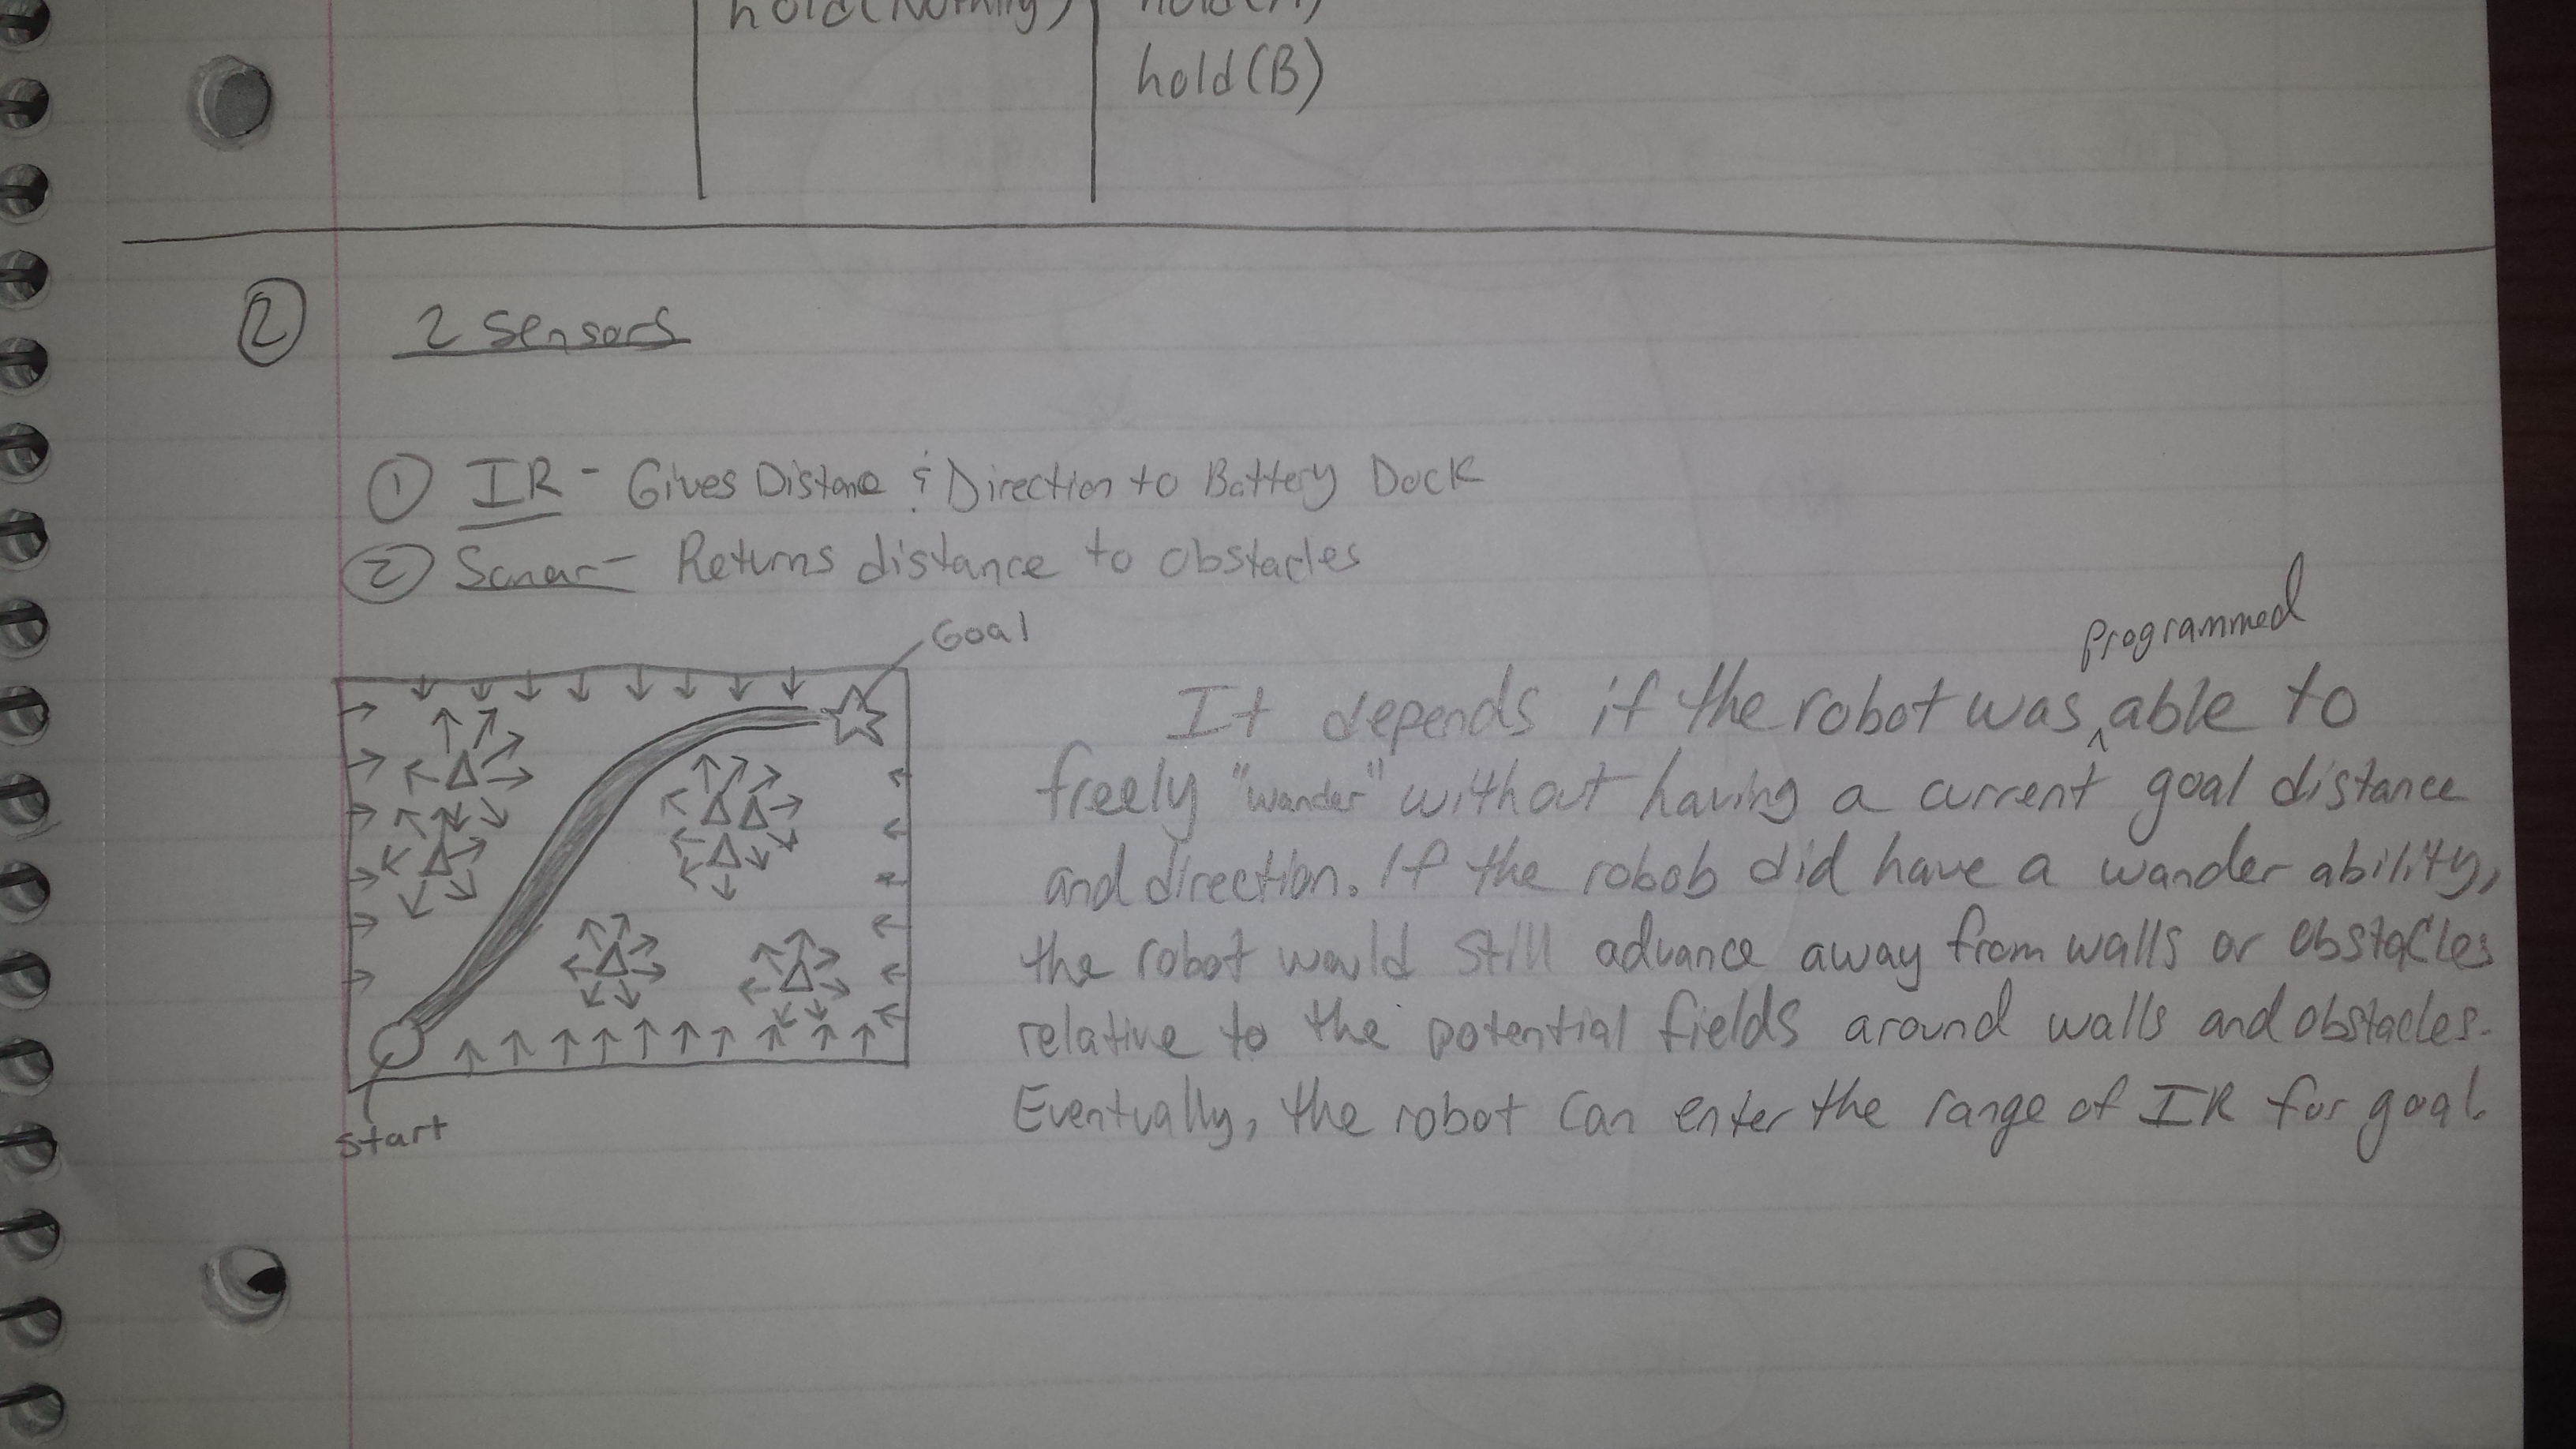 hold(Nothing) hold(A)
hold(B)
2 2 Sensors
1 IR - Gives Distance & Direction to Battery Dock
2 Sonar - Returns distance to obstacles
Goal
Start
programmed
It depends if the robot was ^ able to
freely "wander" without having a current goal distance
and direction. If the robob did have a wander ability,
the robot would still advance away from walls or obstacles
relative to the potential fields around walls and obstacles.
Eventually, the robot can enter the range of IR for goal.